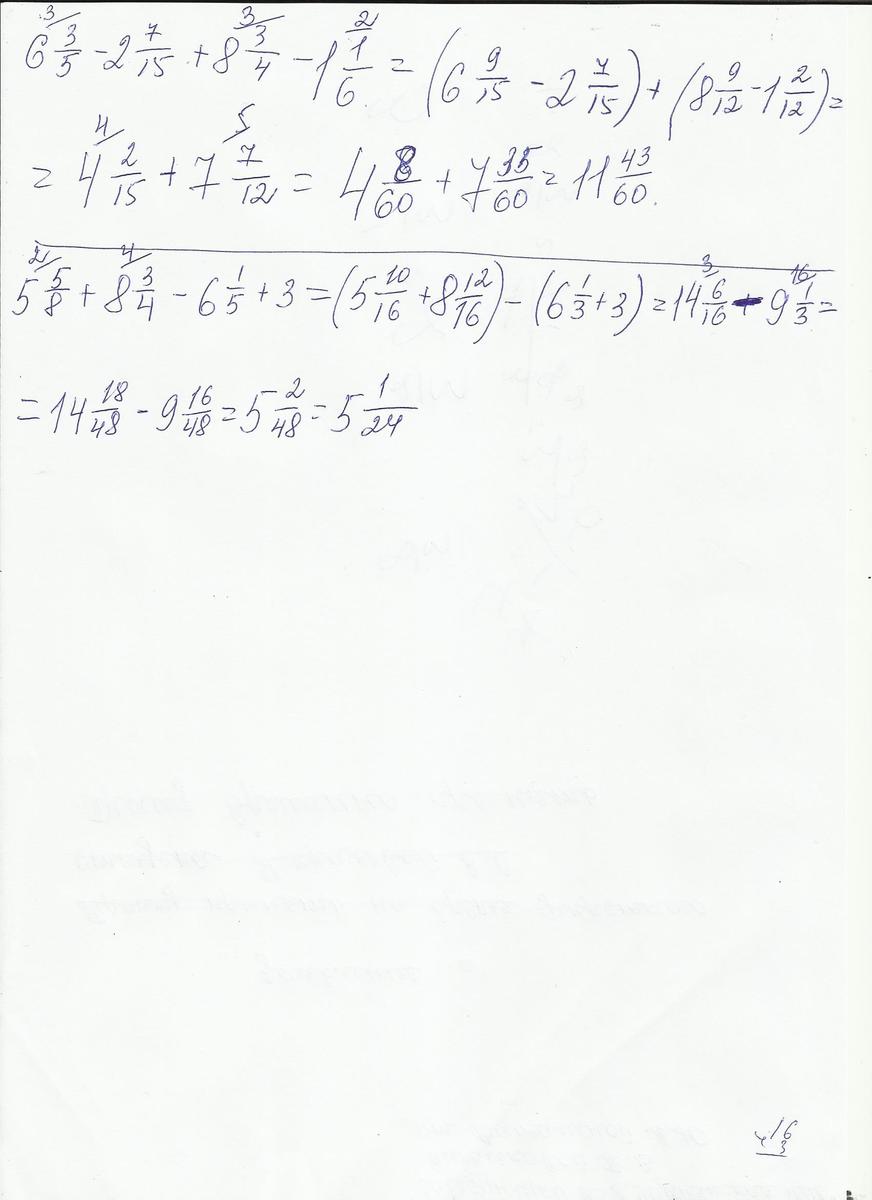 6 3/5 - 2 7/15 + 8 3/4 - 1 1/6 = (6 9/15 - 2 7/15) + (8 9/12 - 1 2/12) =
= 4 2/15 + 7 7/12 = 4 8/60 + 7 35/60 = 11 43/60.
5 5/8 + 8 3/4 - 6 1/5 + 3 = (5 10/16 + 8 12/16) - (6 1/3 + 3) = 14 6/16 - 9 1/3 =
= 14 18/48 - 9 16/48 = 5 2/48 = 5 1/24
16
× 3